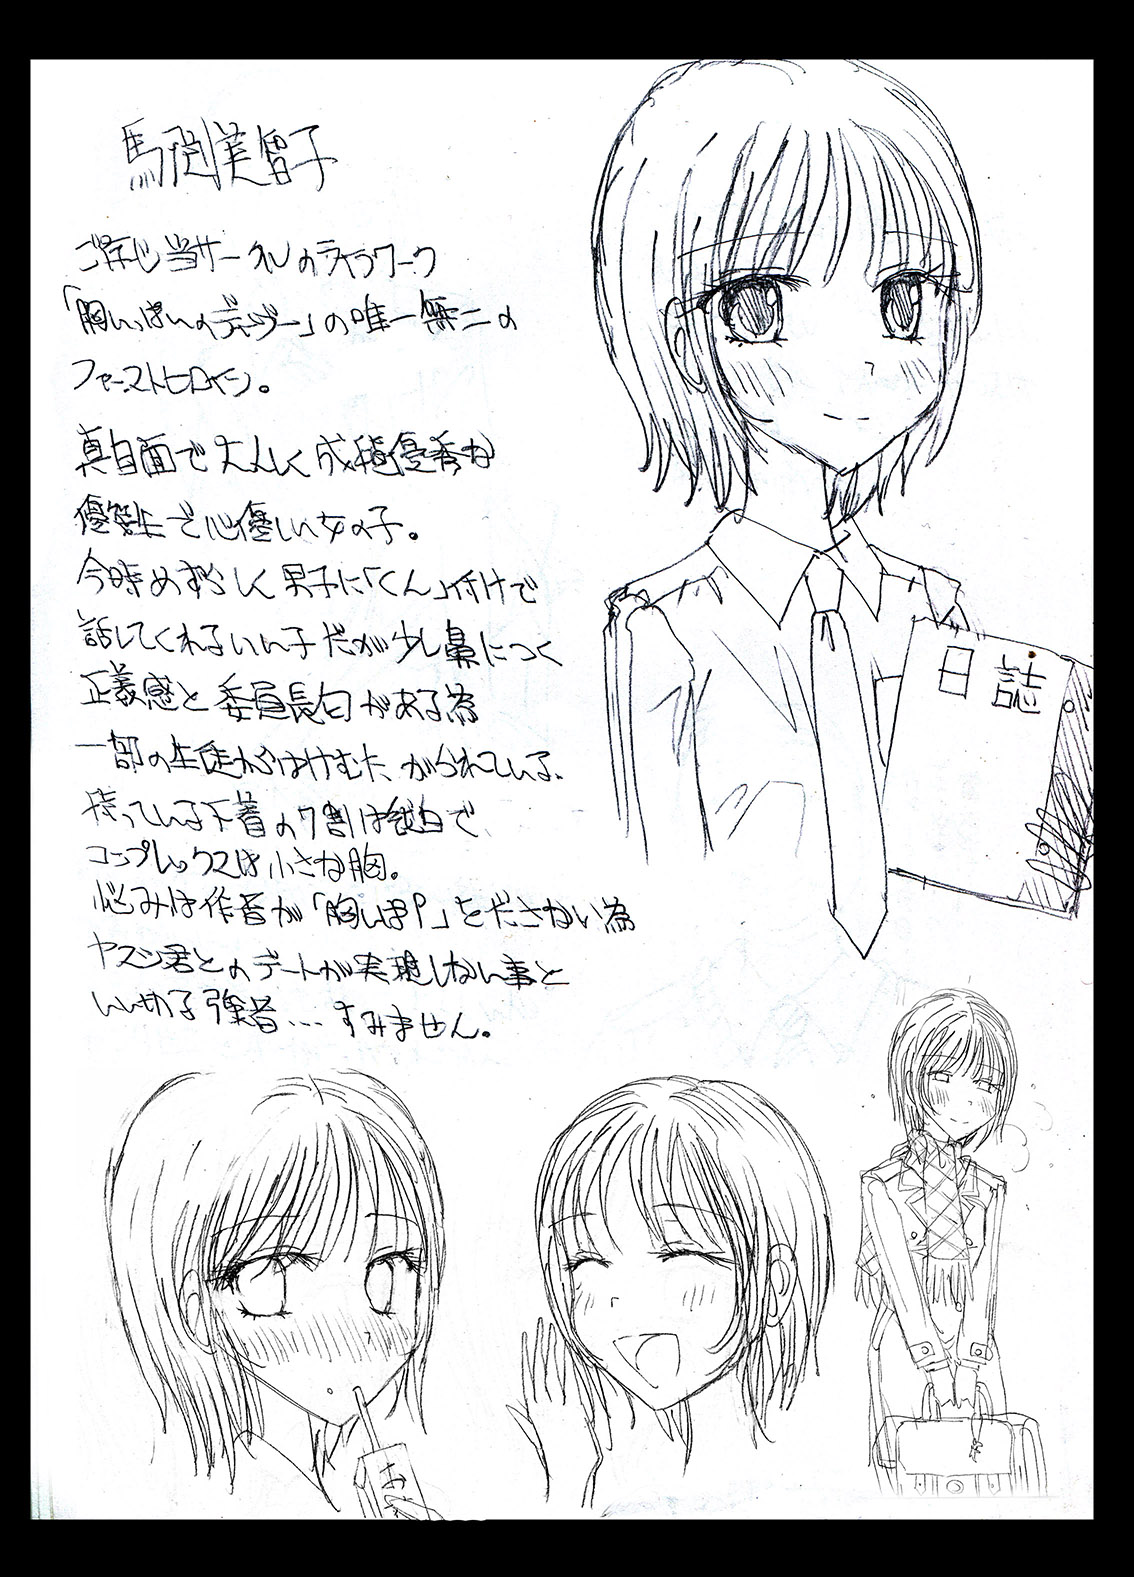 馬渕美智子
ご存じ当サークルのライフワーク
「胸いっぱいのディンジー」の唯一無二の
ファーストヒロイン。
真面目で大人しく成績優秀な
優等生で心優しい女の子。
今時めずらしく男子に「くん」付けで
話してくれるいい子だが少し鼻につく
正義感と委員長臼がある為
一部の生徒からはけむたがられている、
持っている下着の7割は純白で
コンプレックスは小さな胸。
悩みは作者が「胸いぱP」をださない為
ヤスシ君とのデートが実現しない事と
いい切る強者...すみません。
日誌
お